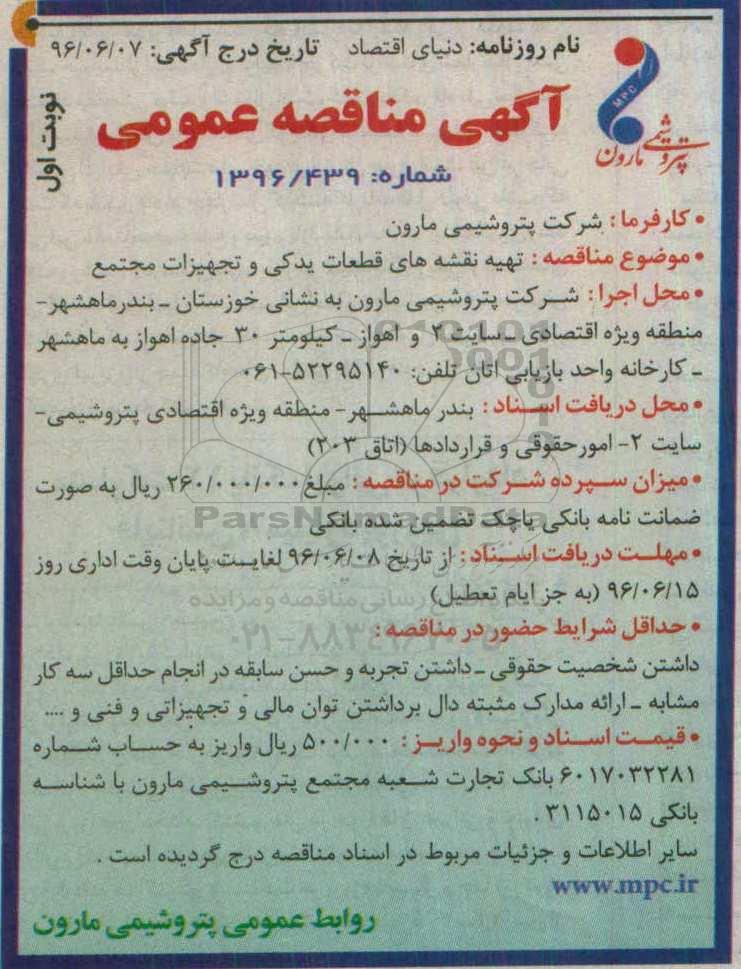 نام روزنامه: دنیای اقتصاد تاریخ درج آگهی: ۹۶/۰۶/۰۷
MPC
پتروشیمی مارون
آگهی مناقصه عمومی
نوبت اول
شماره: ۱۳۹۶/۴۳۹
• کارفرما: شرکت پتروشیمی مارون
• موضوع مناقصه: تهیه نقشه های قطعات یدکی و تجهیزات مجتمع
• محل اجرا: شرکت پتروشیمی مارون به نشانی خوزستان - بندرماهشهر-
منطقه ویژه اقتصادی - سایت ۲ و اهواز - کیلومتر ۳۰ جاده اهواز به ماهشهر
- کارخانه واحد بازیابی اتان تلفن: ۵۲۲۹۵۱۴۰-۰۶۱
• محل دریافت اسناد: بندر ماهشهر- منطقه ویژه اقتصادی پتروشیمی-
سایت ۲- امورحقوقی و قراردادها (اتاق ۲۰۳)
• میزان سپرده شرکت در مناقصه: مبلغ ۲۶۰/۰۰۰/۰۰۰ ریال به صورت
ضمانت نامه بانکی یاچک تضمین شده بانکی
• مهلت دریافت اسناد: از تاریخ ۹۶/۰۶/۰۸ لغایت پایان وقت اداری روز
۹۶/۰۶/۱۵ (به جز ایام تعطیل)
• حداقل شرایط حضور در مناقصه:
داشتن شخصیت حقوقی - داشتن تجربه و حسن سابقه در انجام حداقل سه کار
مشابه - ارائه مدارک مثبته دال برداشتن توان مالی و تجهیزاتی و فنی و ....
• قیمت اسناد و نحوه واریز: ۵۰۰/۰۰۰ ریال واریز به حساب شماره
۶۰۱۷۰۳۲۲۸۱ بانک تجارت شعبه مجتمع پتروشیمی مارون با شناسه
بانکی ۳۱۱۵۰۱۵.
سایر اطلاعات و جزئیات مربوط در اسناد مناقصه درج گردیده است.
www.mpc.ir
روابط عمومی پتروشیمی مارون
ParsNamadData